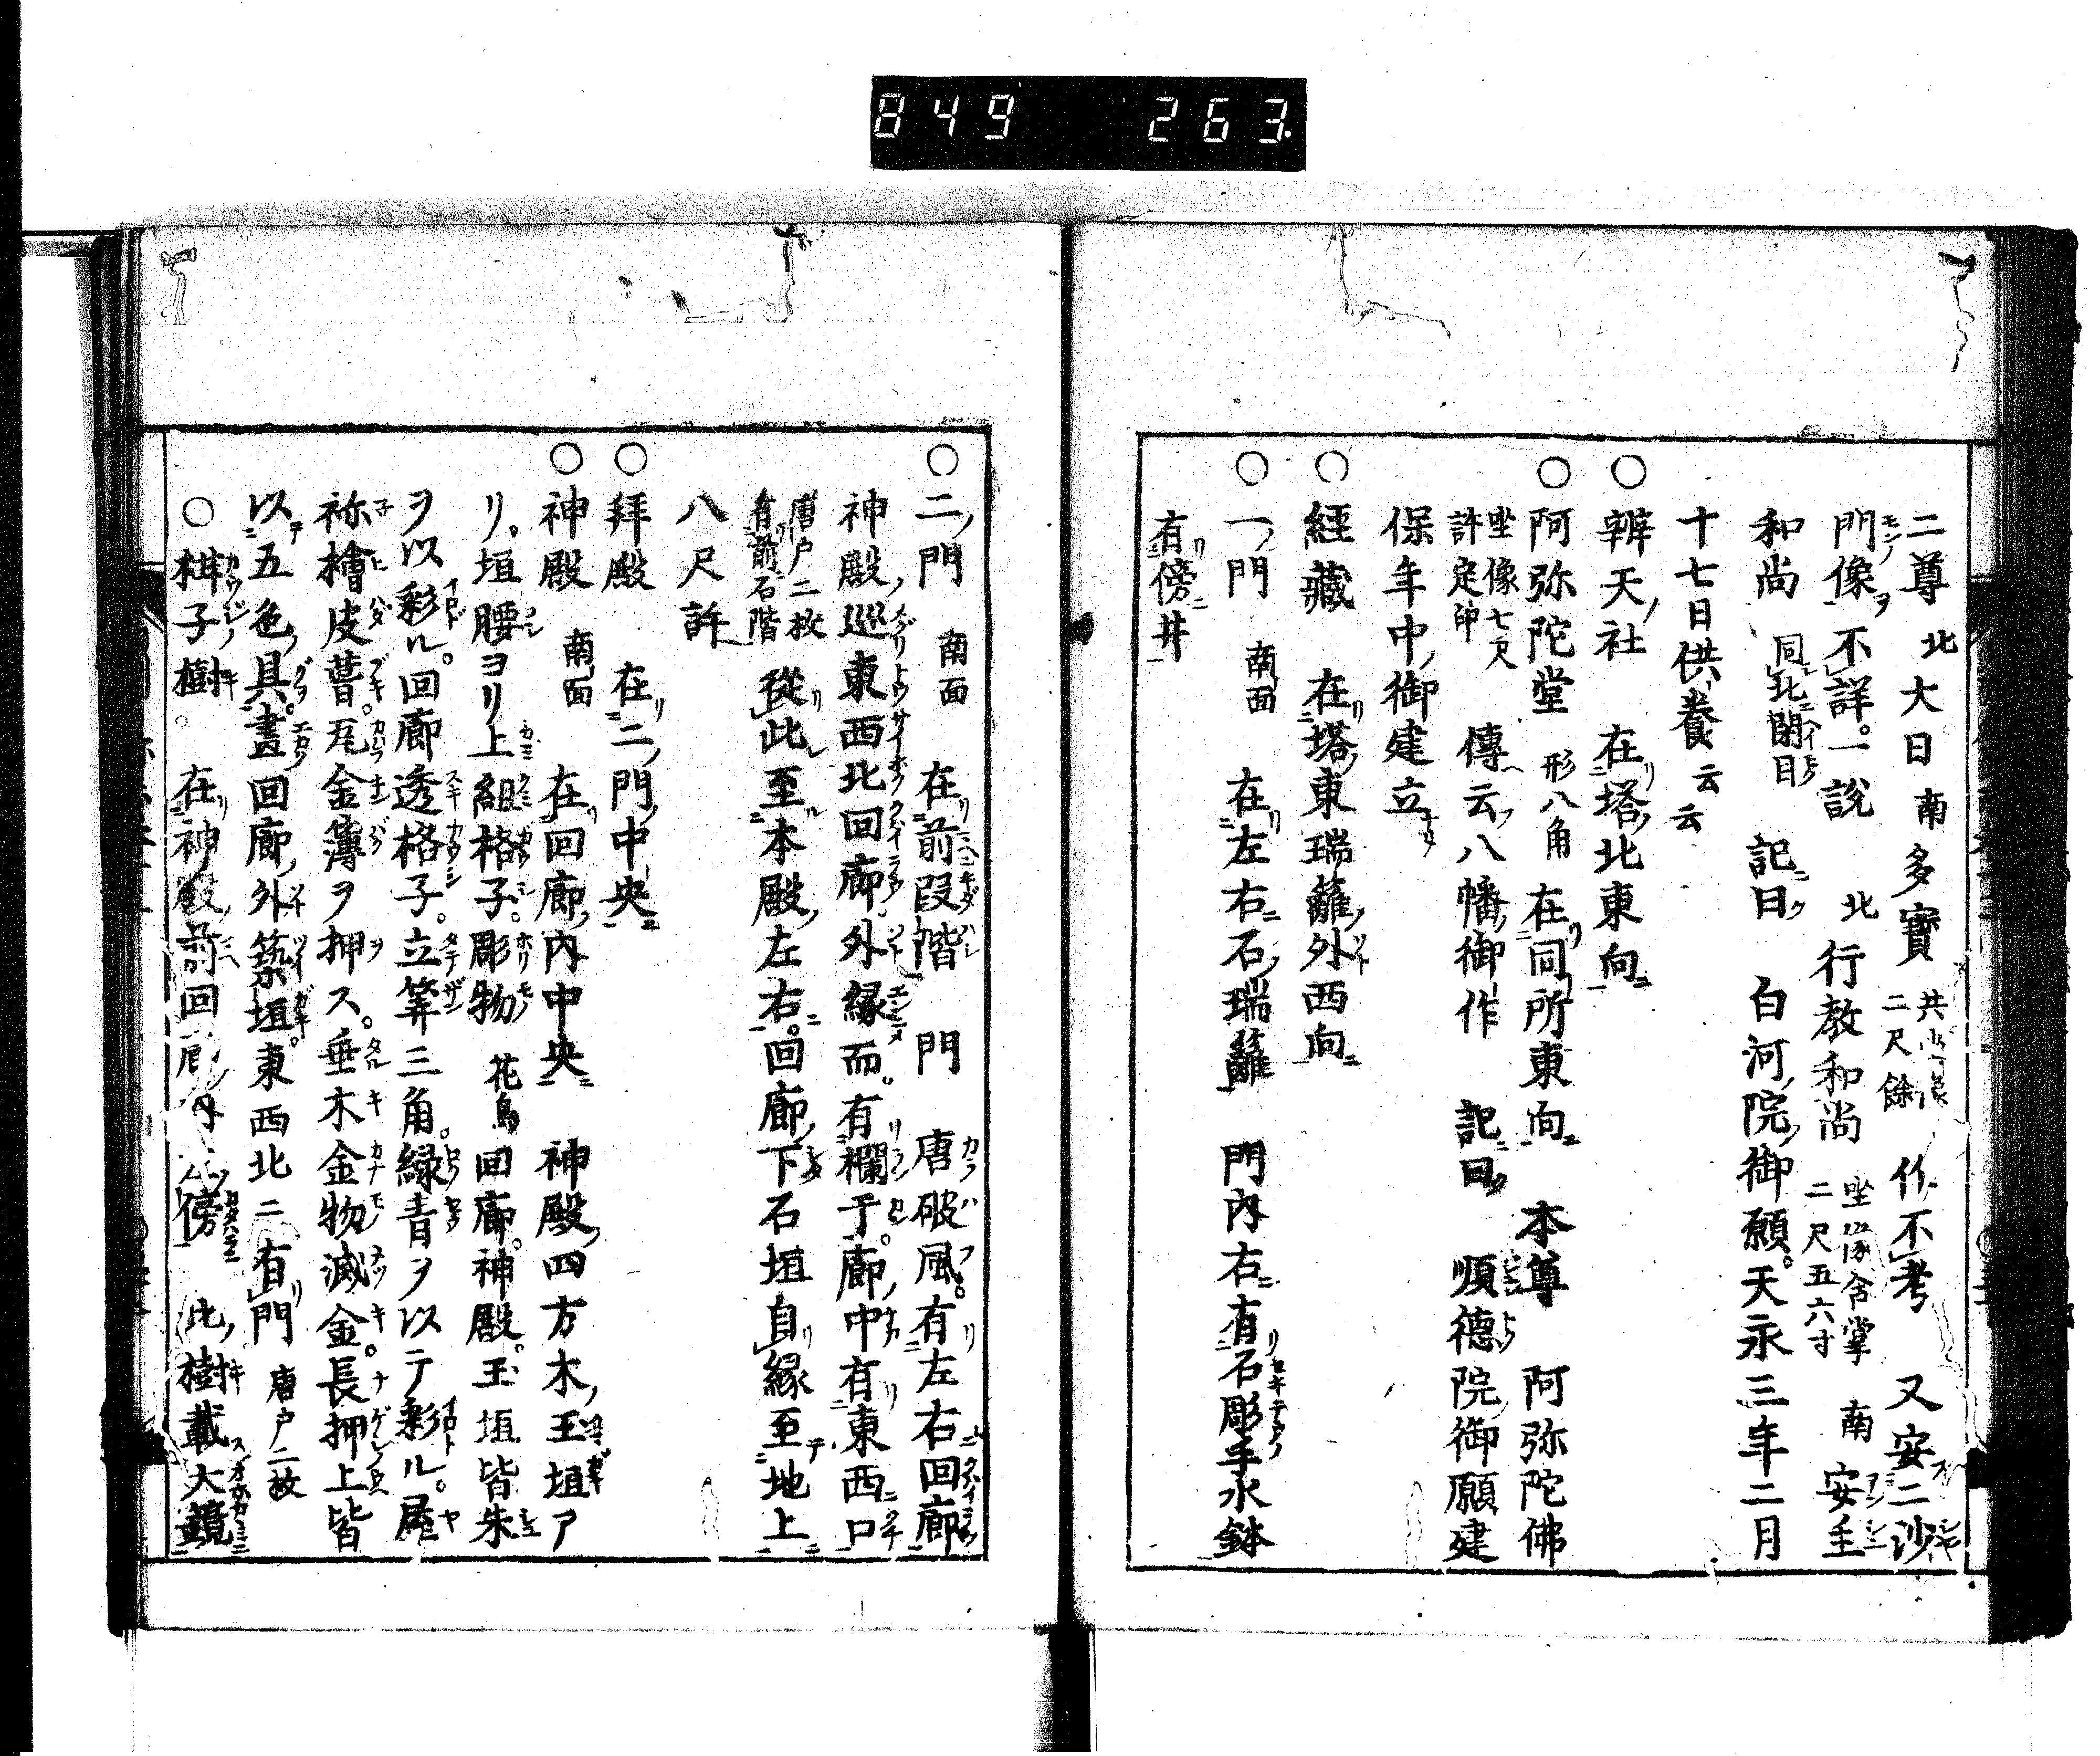 849 263.
二尊 北大日 南多寳 共 二尺餘 作不考 又安二沙
門像 不詳。一説 北行教和尚 坐像合掌 二尺五六寸 南安主
和尚 同北閉目 記曰 白河院御願。天永三年二月
十七日供養云云
○辨天社 在塔北東向
○阿弥陀堂 形八角 在同所東向 本尊 阿弥陀佛
坐像七尺許定印 傳云八幡御作 記曰 順德院御願建
保年中御建立
○經藏 在塔東瑞籬外西向
○一門 南面 在左右石瑞籬 門内右有石彫手水鉢
有傍井
○二門 南面 在前段階 門 唐破風。有左右回廊
神殿巡東西北回廊外縁而。有欄于。廊中有東西口
唐戸二枚有前石階 從此至本殿左右。回廊下石垣自縁至地上
八尺許
○拜殿 在二門中央
○神殿 南面 在回廊内中央 神殿四方木玉垣ア
リ。垣腰ヨリ上組格子。彫物 花鳥 回廊。神殿。玉垣皆朱
ヲ以彩ル。回廊透格子。立筭三角。緑青ヲ以テ彩ル。屋
祢檜皮葺。瓦金薄ヲ押ス。垂木金物滅金。長押上皆
以五色具。畫回廊外築垣。東西北ニ有門 唐戸二枚
○柑子樹。 在神殿前回廊内 傍 此樹載大鏡